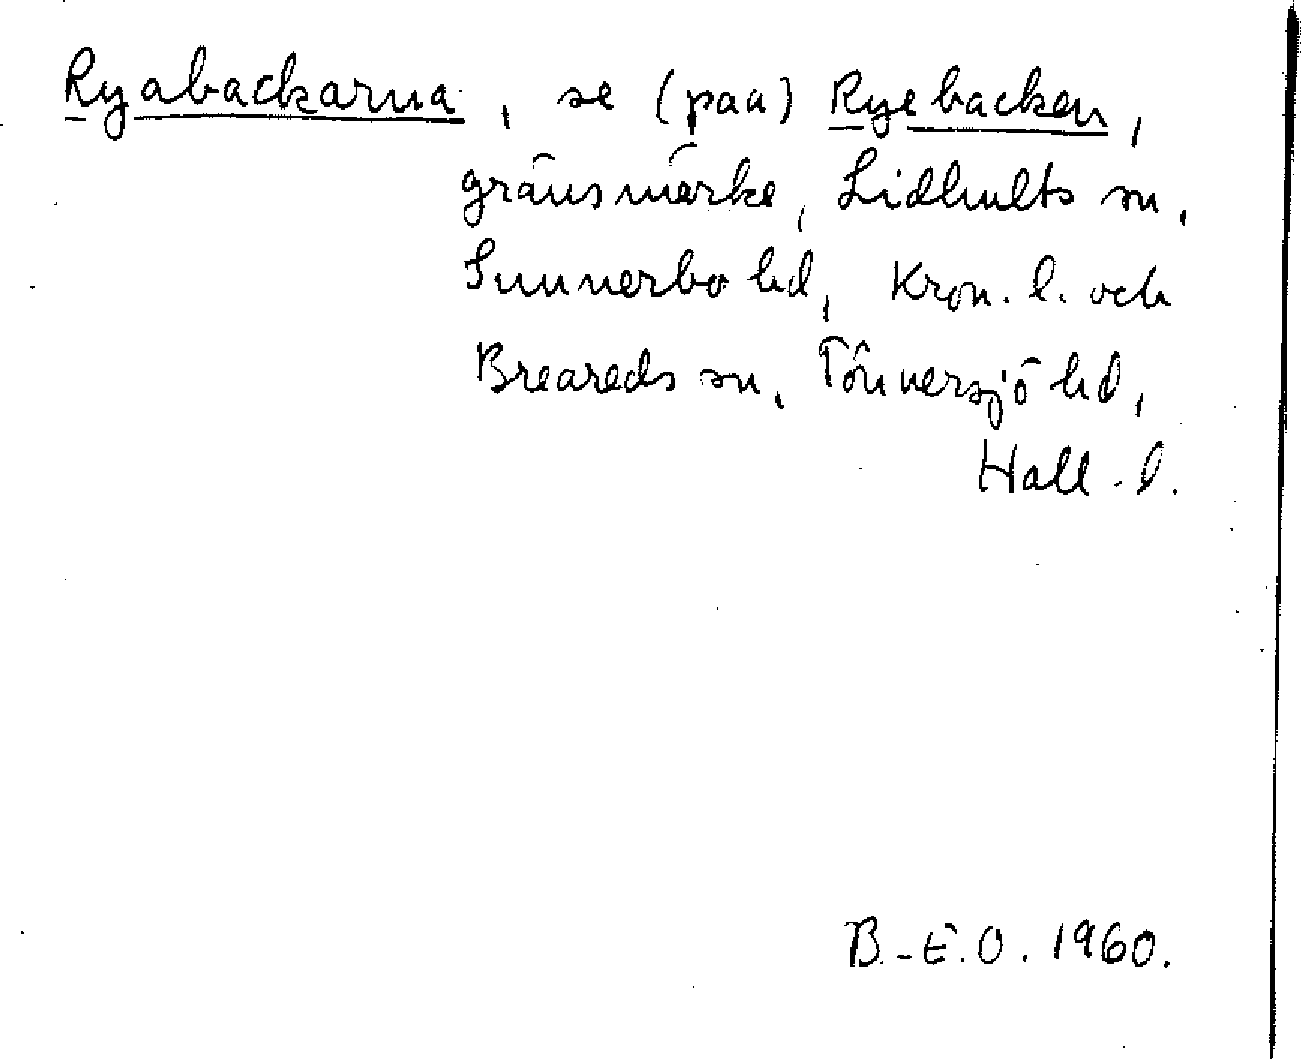 Ryabackarna, se (paa) Ryebacken,
gränsmärke, Lidhults sn,
Sunnerbo hd, Kron. l. och
Breareds sn, Tönnersjö hd,
Hall. l.
B.-E.O. 1960.